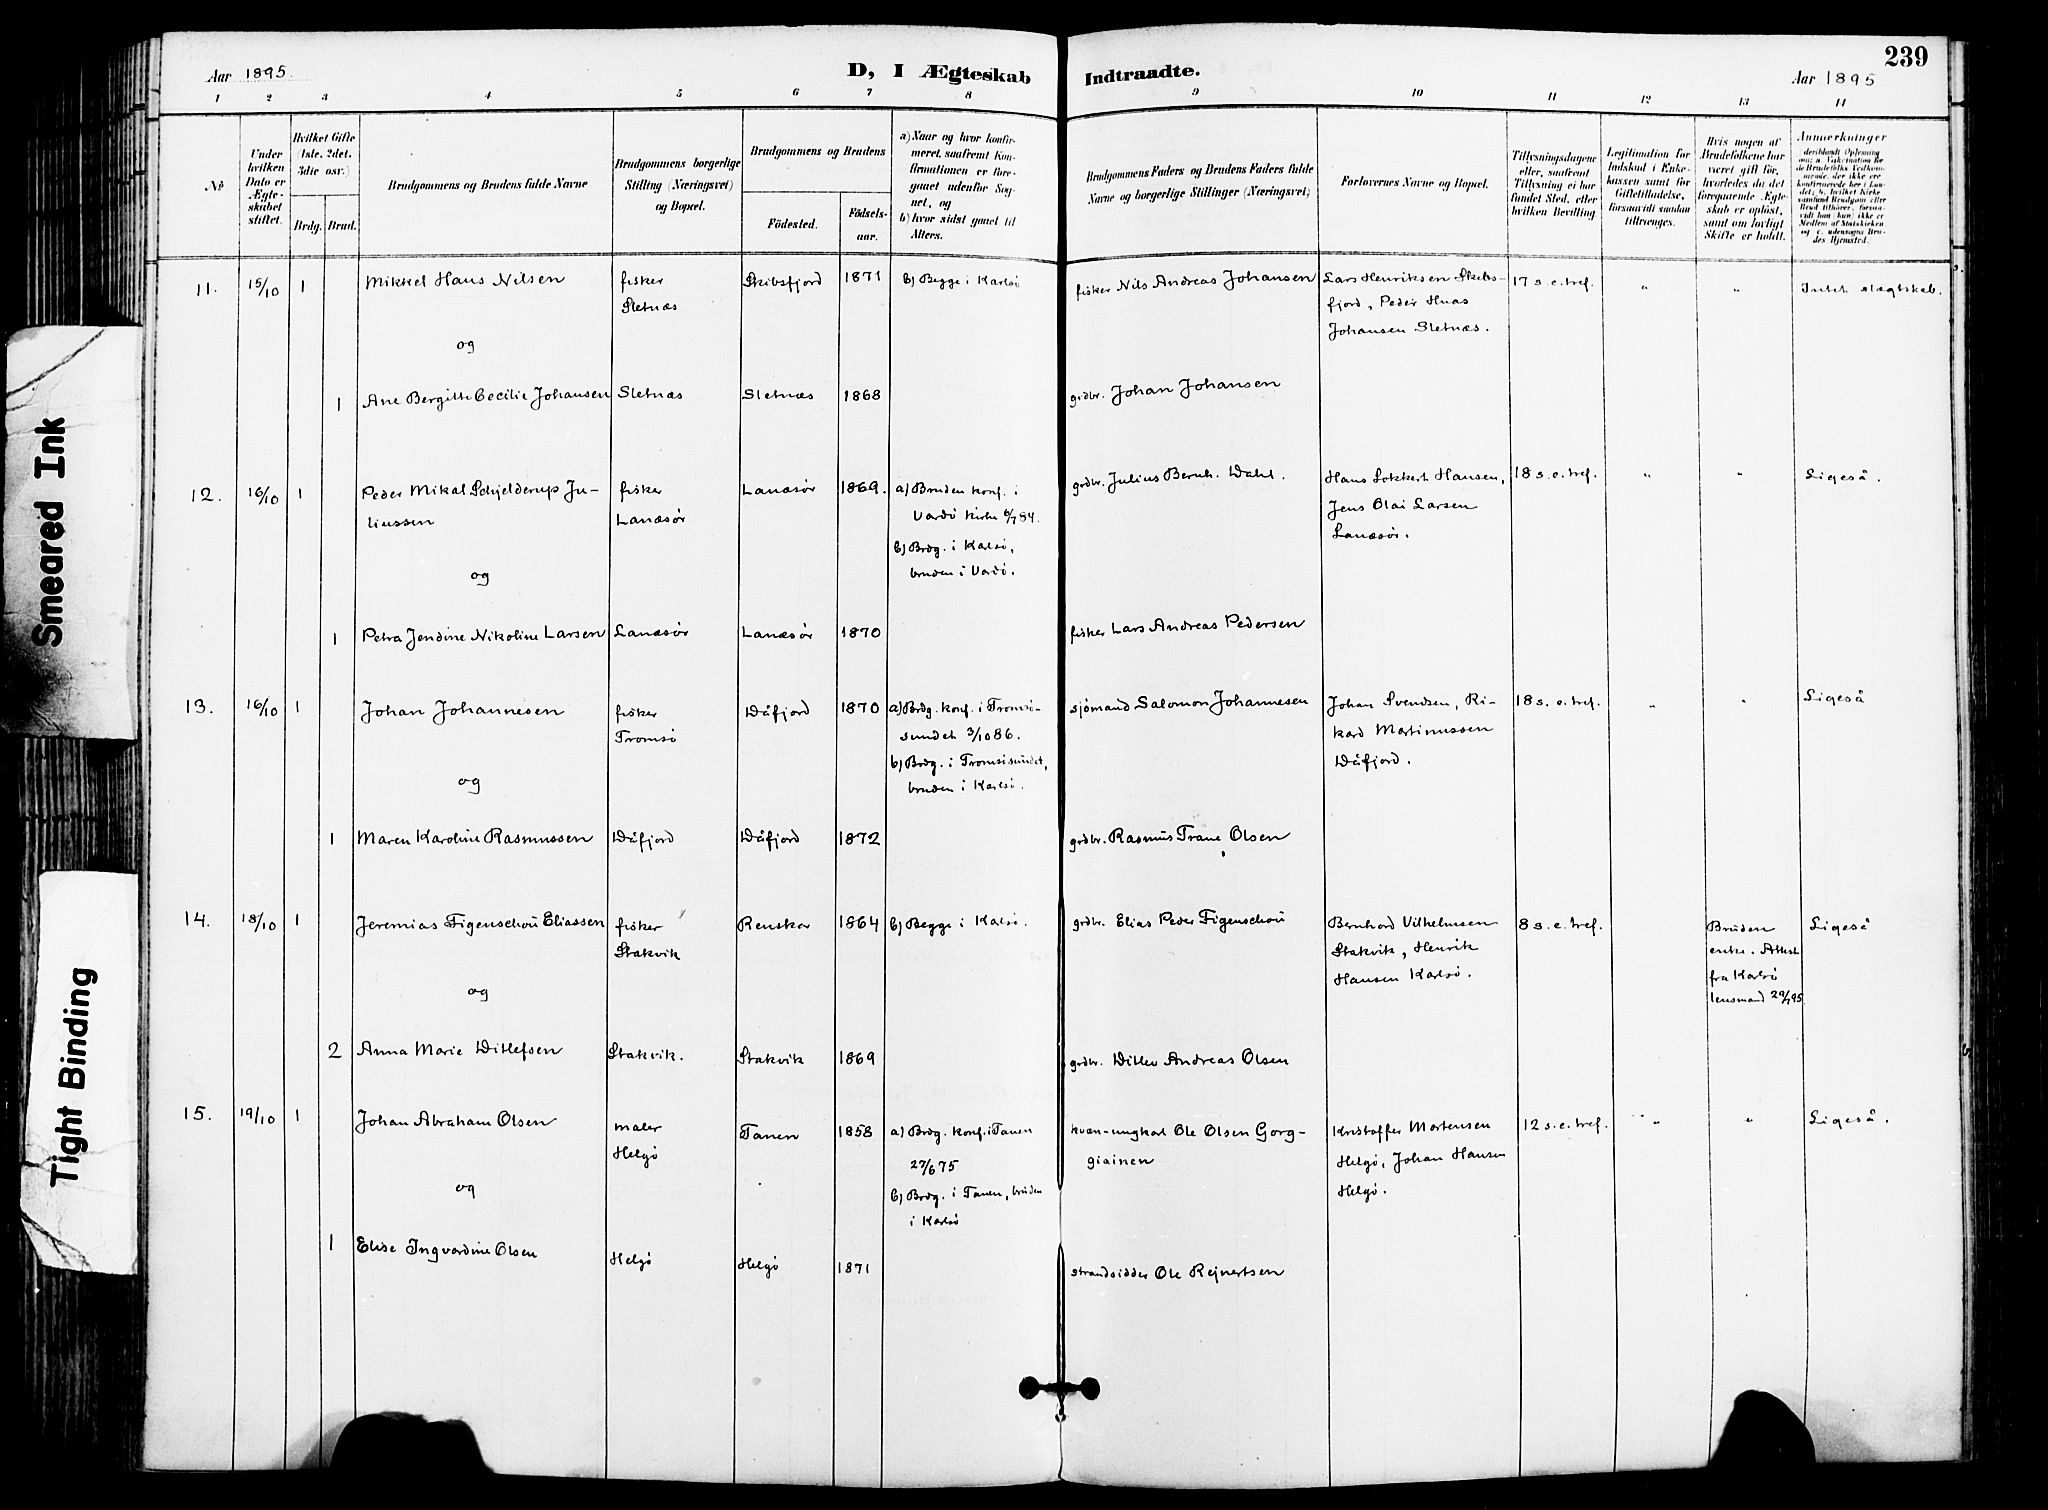 Smeared Ink
Tight Binding
239
Aar 1895.
D, I Ægteskab
Indtraadte.
Aar 1895
1 2 3 4 5 6 7 8 9 10 11 12 13 14
No
Under hvilken Dato er Ægteskabet stiftet.
Hvilket Gifte (1ste, 2det, 3die osv.)
Brdg. Brud.
Brudgommens og Brudens fulde Navne
Brudgommens borgerlige Stilling (Næringsvei) og Bopæl.
Brudgommens og Brudens
Fødested.
Fødsels-aar.
a) Naar og hvor konfirmeret, saafremt Konfirmationen er foregaaet udenfor Sognet, og
b) hvor sidst gaaet til Alters.
Brudgommens Faders og Brudens Faders fulde Navne og borgerlige Stillinger (Næringsvei)
Forlovernes Navne og Bopæl.
Tillysningsdagene eller, saafremt Tillysning ei har fundet Sted, efter hvilken Bevilling
Legitimation for Indskud i Enkekassen samt for Giftetilladelse, forsaavidt saadan tiltrænges.
Hvis nogen af Brudefolkene har været gift før, hvorledes da det foregaaende Ægteskab er opløst, samt om lovligt Skifte er holdt.
Anmerkninger
11. 15/10 1 Mikkel Hans Nilsen fisker Sletnæs Skibsfjord 1871 b) Begge i Karlsø fisker Nils Andreas Johansen Lars Henriksen Skibs-
fjord, Peder Hnas
Johansen Sletnæs. 17 s. e. tref. " " Intet slægtskab.
og
1 Ane Bergitte Cecilie Johansen Sletnæs Sletnæs 1868 grdbr. Johan Johansen
12. 16/10 1 Peder Mikal Schjelderup Ju-
liussen fisker Lanæsør Lanæsør 1869. a) Bruden konf. i
Vardø kirke 6/7 84.
b) Brdg. i Karlsø,
bruden i Vardø. grdbr. Julius Bernh. Dahl. Hans Lokkert Hansen,
Jens Olai Larsen
Lanæsør. 18 s. e. tref. " " Ligeså.
og
1 Petra Jendine Nikoline Larsen Lanæsør Lanæsør 1870 fisker Lars Andreas Pedersen
13. 16/10 1 Johan Johannesen fisker Tromsø Dåfjord 1870 a) Brdg. konf. i Tromsø-
sundet 3/10 86.
b) Brdg. i Tromsøsundet,
bruden i Karlsø. sjømand Salomon Johannesen Johan Svendsen, Ri-
kard Martinussen
Dåfjord. 18 s. e. tref. " " Ligeså
og
1 Maren Karoline Rasmussen Dåfjord Dåfjord 1872 grdbr. Rasmus Trane Olsen
14. 18/10 1 Jeremias Figenschou Eliassen fisker Stakvik Renskar 1864 b) Begge i Karlsø. grdbr. Elias Peder Figenschou Bernhard Vilhelmsen
Stakvik, Henrik
Hansen Karlsø. 8 s. e. tref. Bruden
enke. Attest
fra Karlsø
lensmand 29/7 95 Ligeså
og
2 Anna Marie Ditlefsen Stakvik. Stakvik 1869 grdbr. Ditlev Andreas Olsen
15. 19/10 1 Johan Abraham Olsen maler Helgø Tanen 1858 a) Brdg. konf. i Tanen
27/6 75
b) Brdg. i Tanen, bruden
i Karlsø kvæn-ungkal Ole Olsen Gorg-
giainen Kristoffer Mortensen
Helgø, Johan Hansen
Helgø. 12 s. e. tref. " " Ligeså.
og
1 Elise Ingvardine Olsen Helgø Helgø 1871 strandsidder Ole Rejnertsen